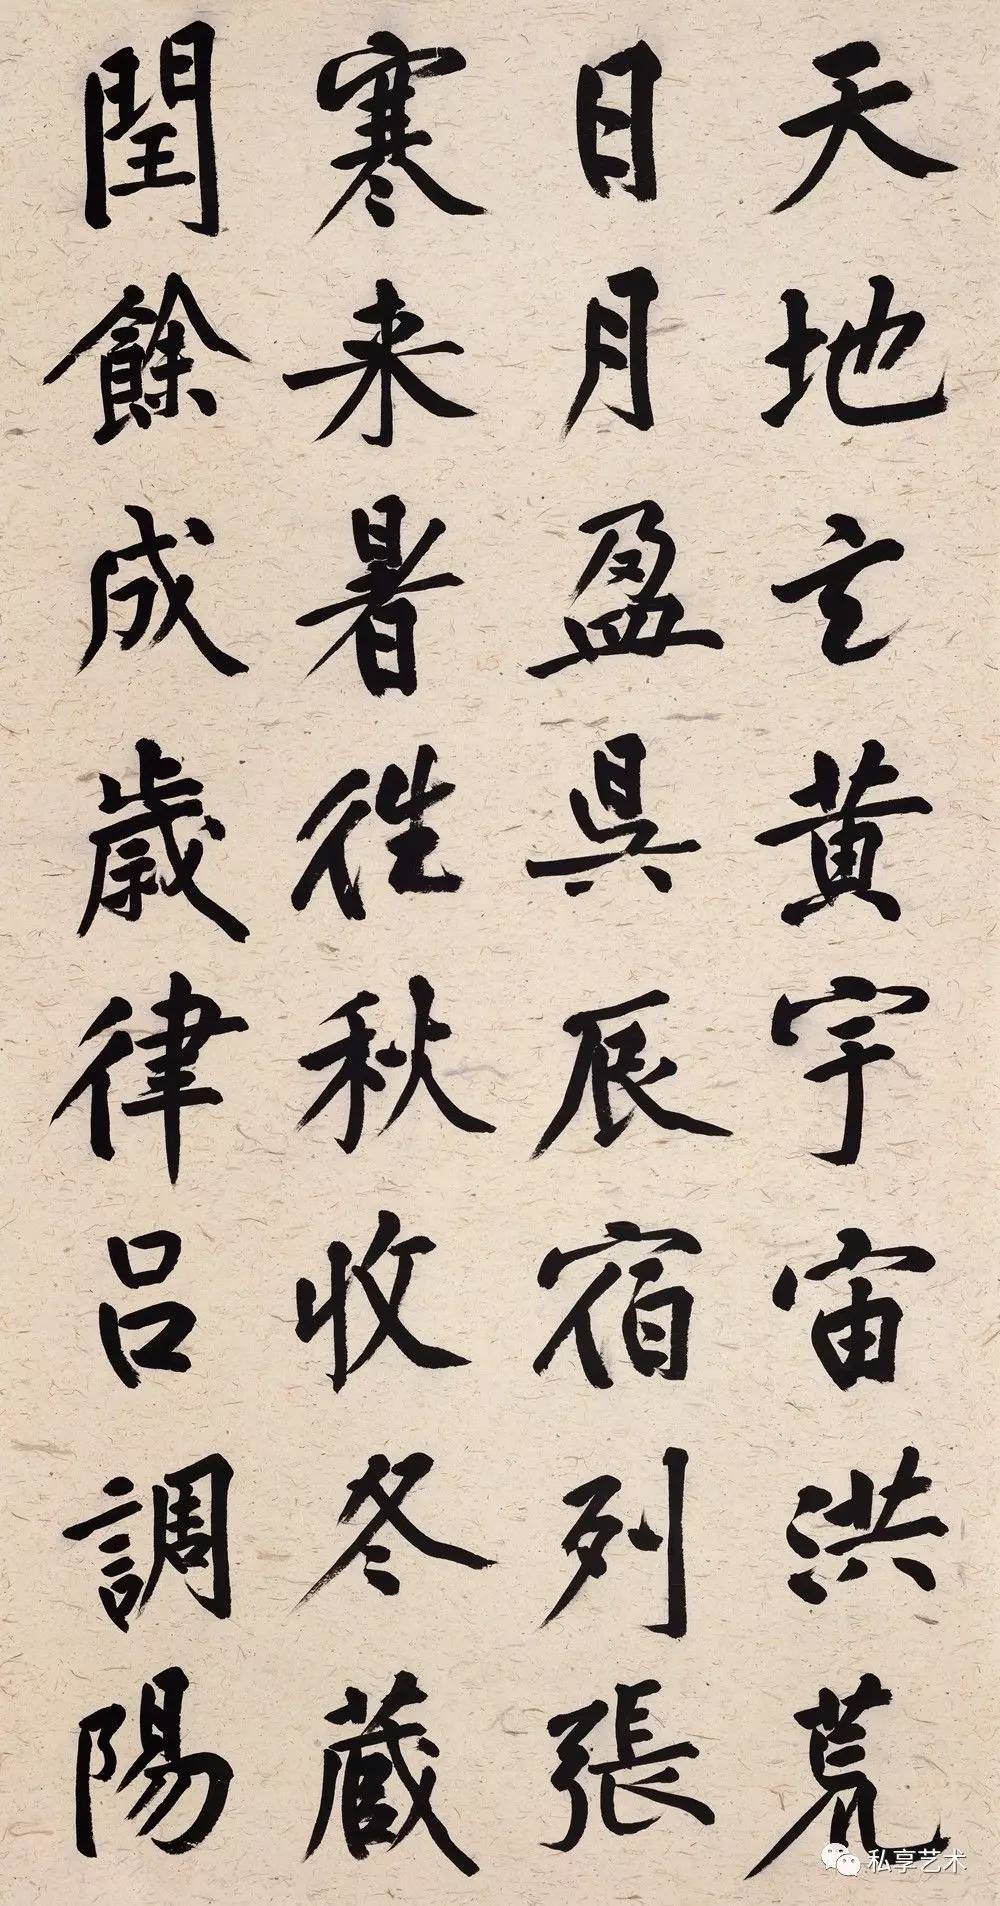 天地玄黄宇宙洪荒
日月盈昃辰宿列張
寒来暑往秋收冬蔵
閏餘成歲律呂調陽
私享艺术